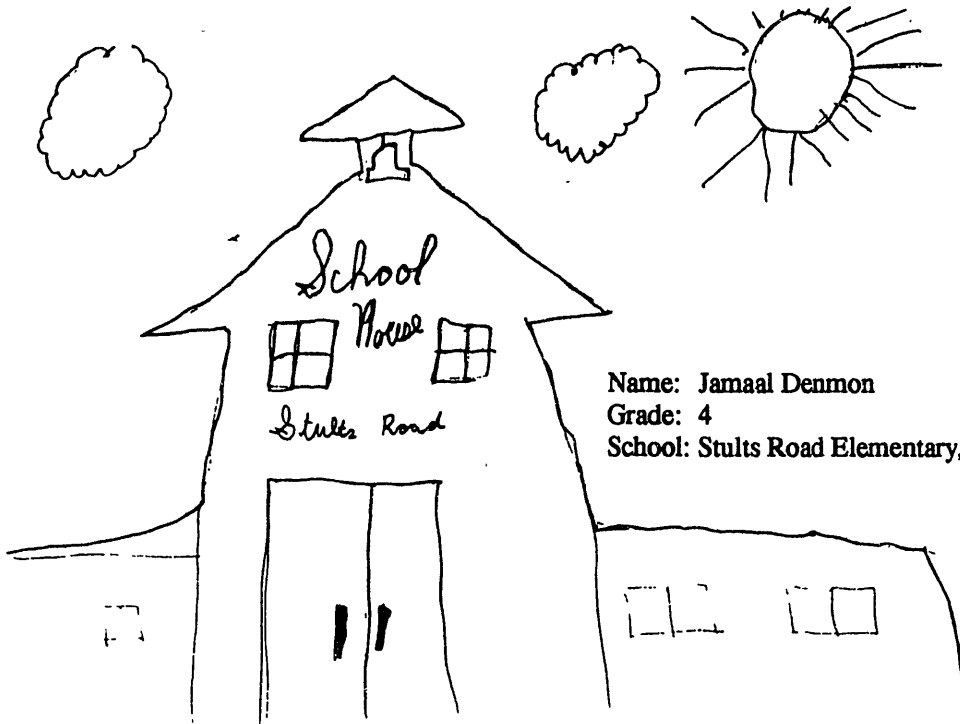 School
House
Stults Road
Name: Jamaal Denmon
Grade: 4
School: Stults Road Elementary,